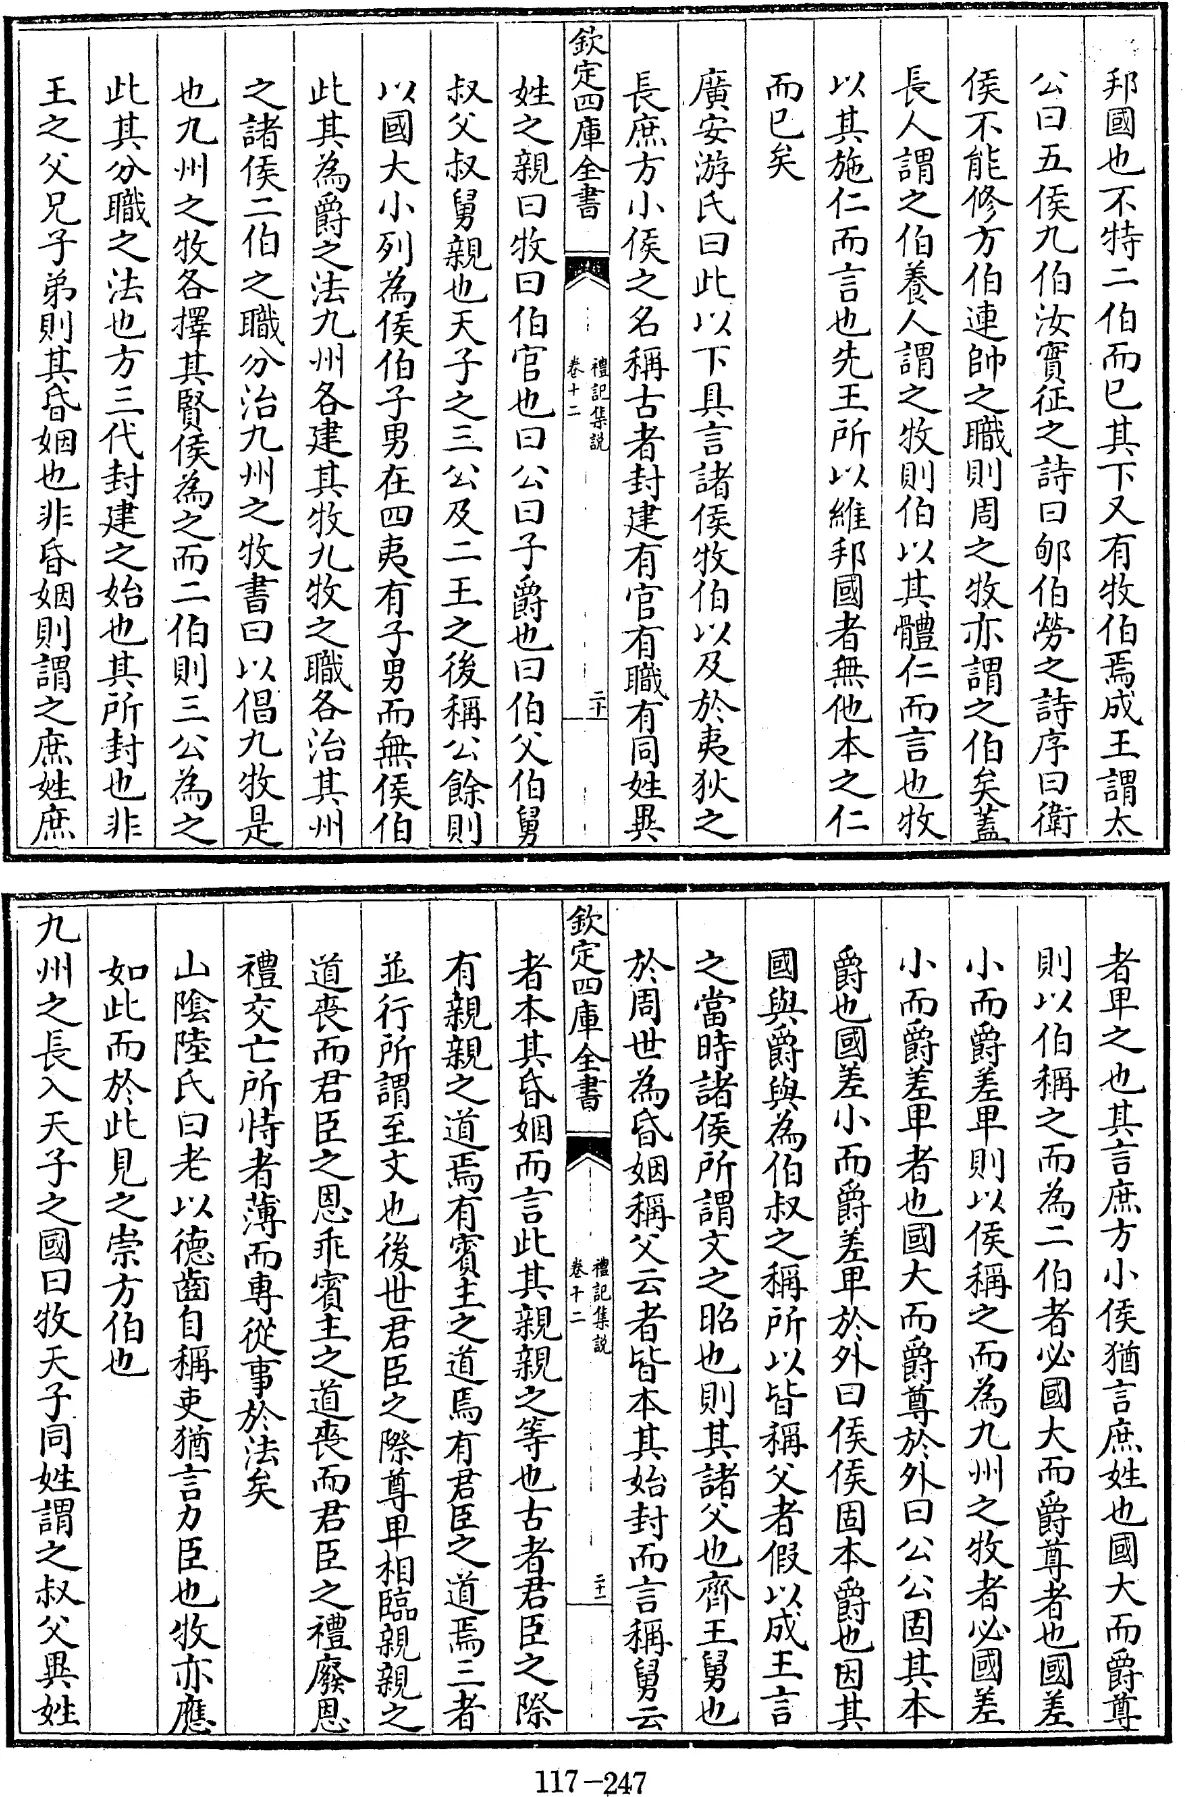 邦國也不特二伯而已其下又有牧伯焉成王謂太
公曰五侯九伯汝實征之詩曰郇伯勞之詩序曰衛
侯不能修方伯連帥之職則周之牧亦謂之伯矣蓋
長人謂之伯養人謂之牧則伯以其體仁而言也牧
以其施仁而言也先王所以維邦國者無他本之仁
而已矣
廣安游氏曰此以下具言諸侯牧伯以及於夷狄之
長庶方小侯之名稱古者封建有官有職有同姓異
欽定四庫全書
禮記集說
卷十二
二十
姓之親曰牧曰伯官也曰公曰子爵也曰伯父伯舅
叔父叔舅親也天子之三公及二王之後稱公餘則
以國大小列為侯伯子男在四夷有子男而無侯伯
此其為爵之法九州各建其牧九牧之職各治其州
之諸侯二伯之職分治九州之牧書曰以倡九牧是
也九州之牧各擇其賢侯為之而二伯則三公為之
此其分職之法也方三代封建之始也其所封也非
王之父兄子弟則其昏姻也非昏姻則謂之庶姓庶
者卑之也其言庶方小侯猶言庶姓也國大而爵尊
則以伯稱之而為二伯者必國大而爵尊者也國差
小而爵差卑則以侯稱之而為九州之牧者必國差
小而爵差卑者也國大而爵尊於外曰公公固其本
爵也國差小而爵差卑於外曰侯侯固本爵也因其
國與爵與為伯叔之稱所以皆稱父者假以成王言
之當時諸侯所謂文之昭也則其諸父也齊王舅也
於周世為昏姻稱父云者皆本其始封而言稱舅云
欽定四庫全書
禮記集說
卷十二
二十一
者本其昏姻而言此其親親之等也古者君臣之際
有親親之道焉有賓主之道焉有君臣之道焉三者
並行所謂至文也後世君臣之際尊卑相臨親親之
道喪而君臣之恩乖賓主之道喪而君臣之禮廢恩
禮交亡所恃者薄而專從事於法矣
山陰陸氏曰老以德齒自稱吏猶言力臣也牧亦應
如此而於此見之崇方伯也
九州之長入天子之國曰牧天子同姓謂之叔父異姓
117-247